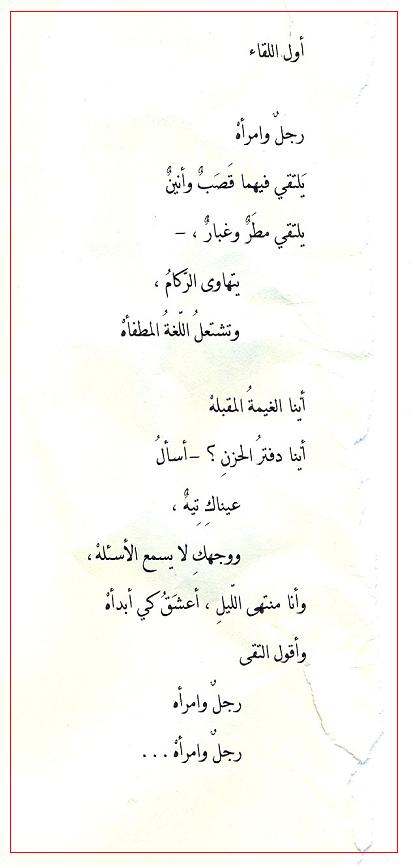 أول اللقاء
رجلٌ وامرأهْ
يَلتقي فيهما قَصَبٌ وأنينٌ
يلتقي مطَرٌ وغبارٌ ، –
يتهاوى الرَّكامُ ،
وتشتعلُ اللّغةُ المطفأهْ
أينا الغيمةُ المقبلهْ
أينا دفترُ الحزنِ ؟ –أسألُ
عيناكِ تِيهٌ ،
ووجهكِ لا يسمع الأسئلهْ ،
وأنا منتهى اللّيلِ ، أعشَقُ كي أبدأهْ
وأقول التقى
رجلٌ وامرأه
رجلٌ وامرأهْ ...